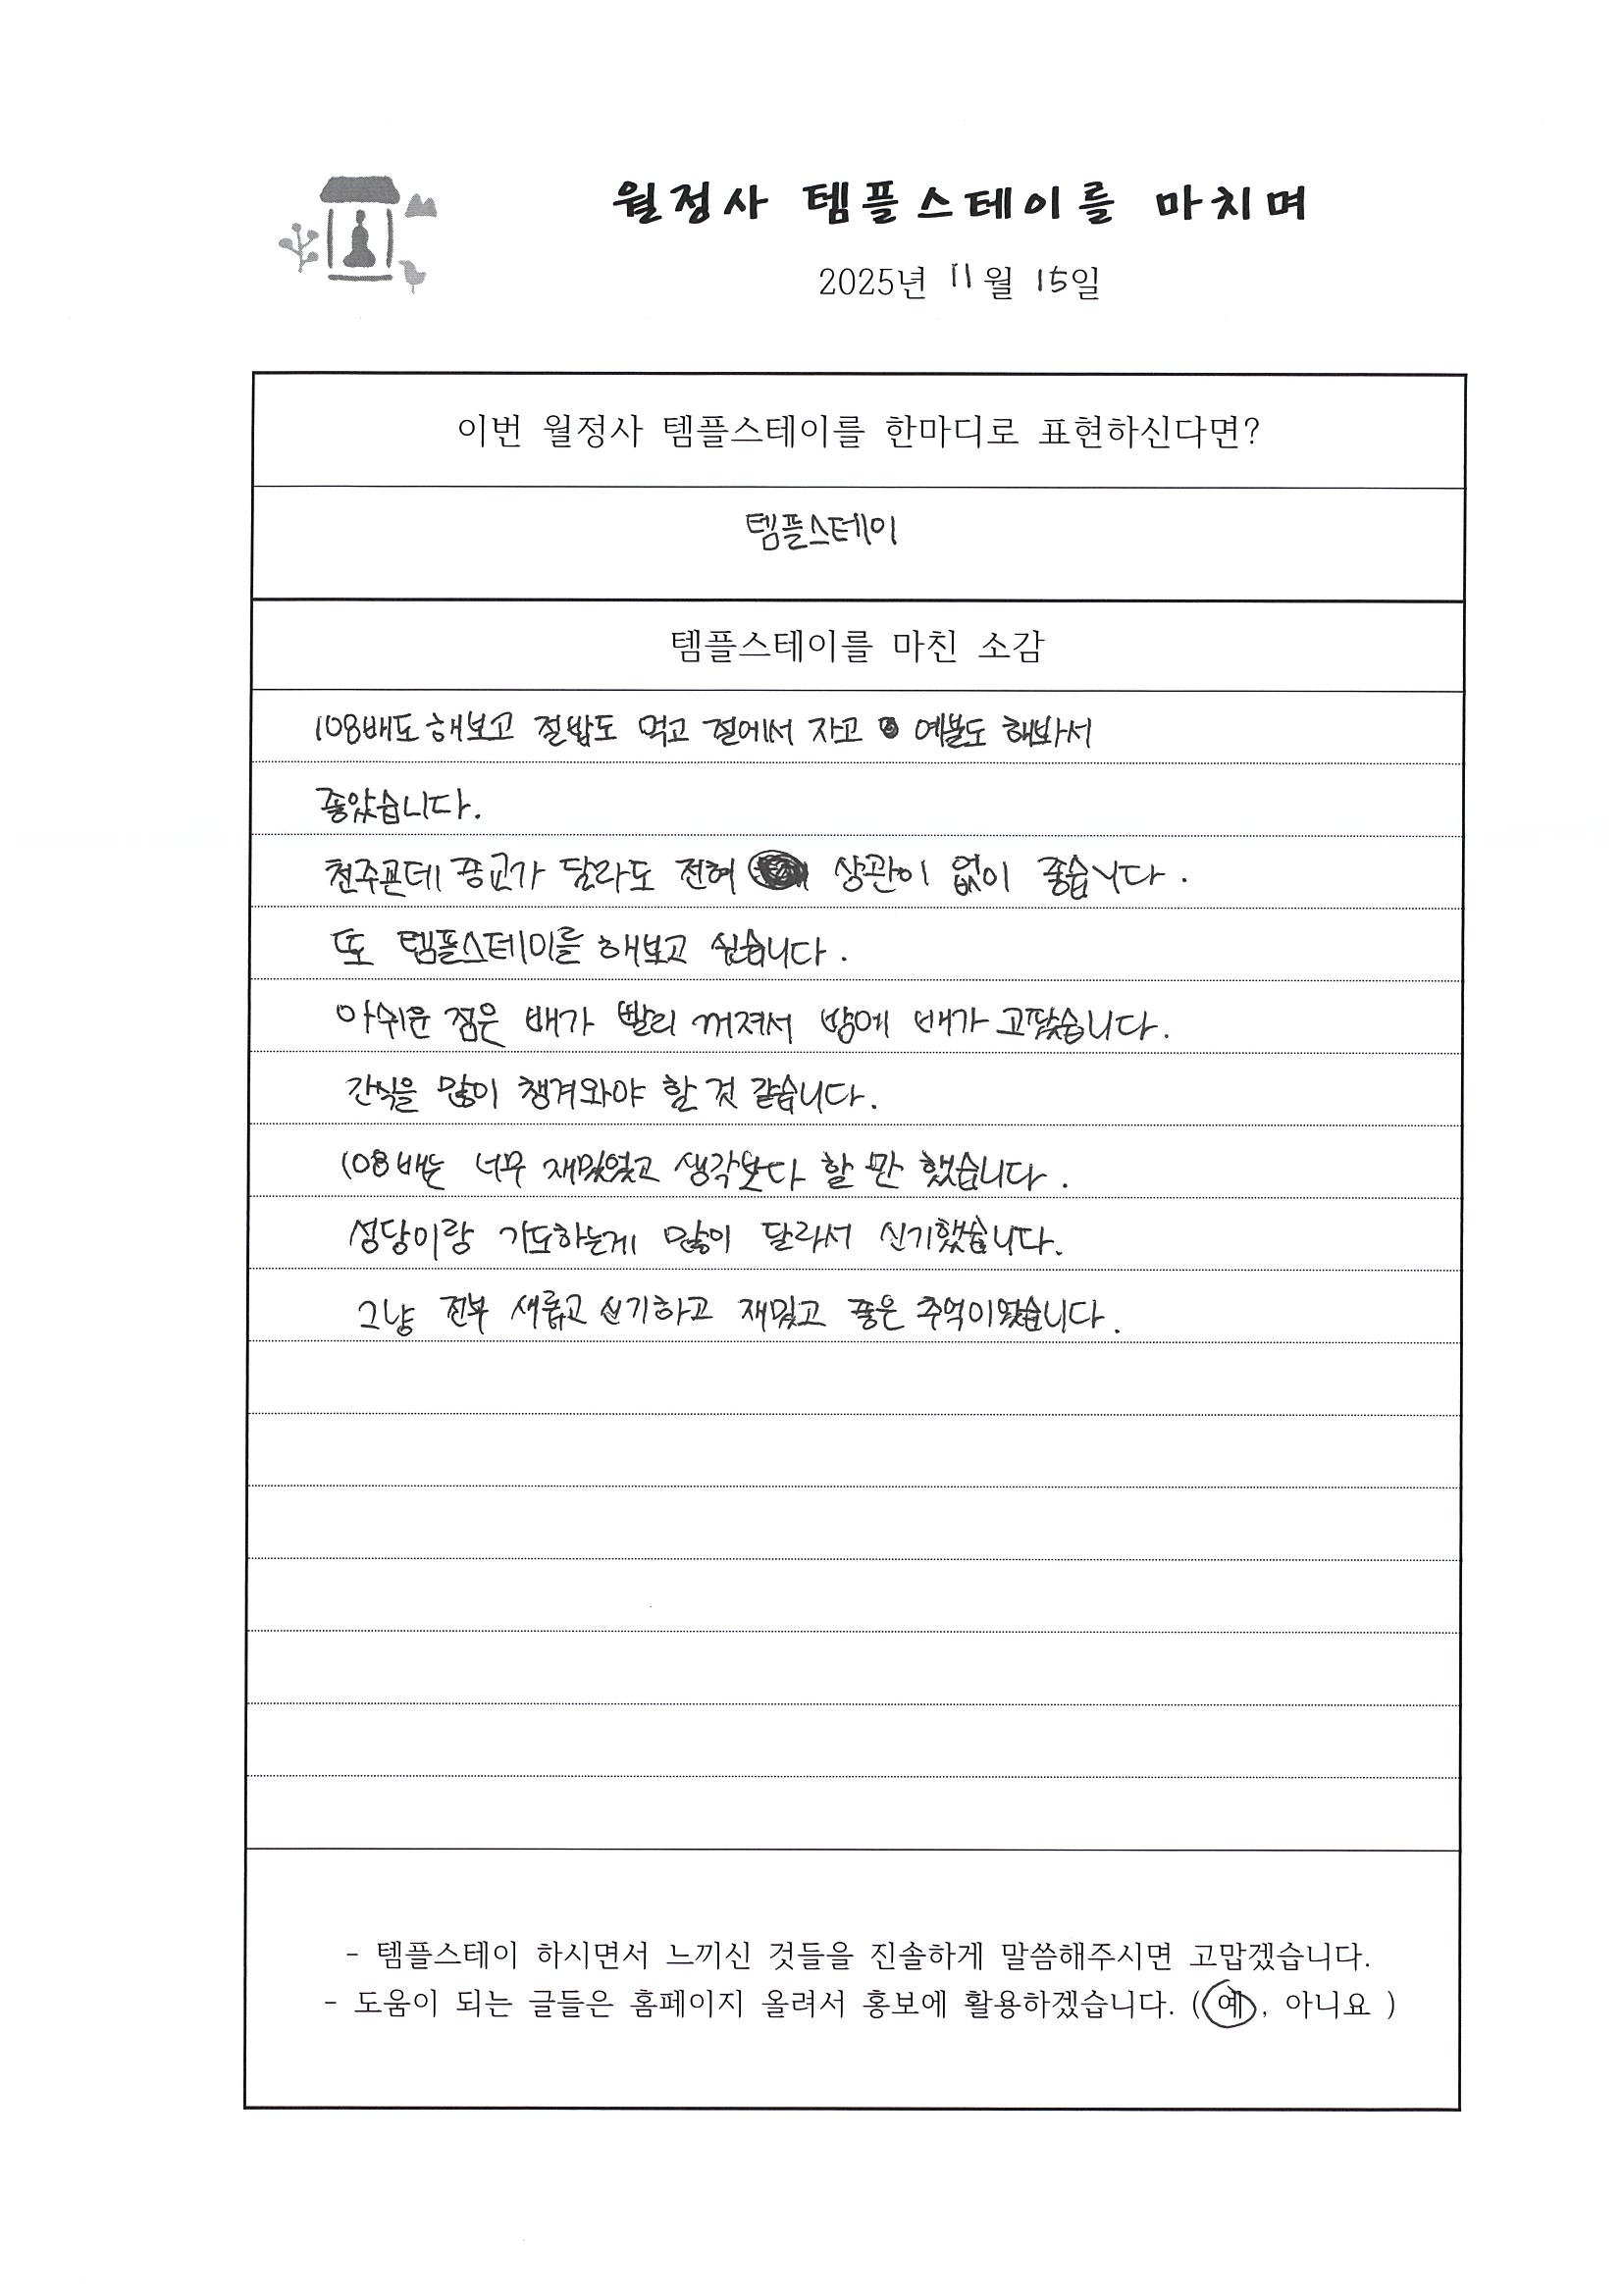 월정사 템플스테이를 마치며
2025년 11월 15일
이번 월정사 템플스테이를 한마디로 표현하신다면?
템플스테이
템플스테이를 마친 소감
108배도 해보고 절밥도 먹고 절에서 자고 예불도 해봐서
좋았습니다.
천주굔데 종교가 달라도 전혀 상관이 없이 좋습니다.
또 템플스테이를 해보고 싶습니다.
아쉬운 점은 배가 빨리 꺼져서 밤에 배가 고팠습니다.
간식을 많이 챙겨와야 할 것 같습니다.
108배는 너무 재밌었고 생각보다 할 만 했습니다.
성당이랑 기도하는게 많이 달라서 신기했습니다.
그냥 전부 새롭고 신기하고 재밌고 좋은 추억이었습니다.
- 템플스테이 하시면서 느끼신 것들을 진솔하게 말씀해주시면 고맙겠습니다.
- 도움이 되는 글들은 홈페이지 올려서 홍보에 활용하겠습니다. ( 예 , 아니요 )